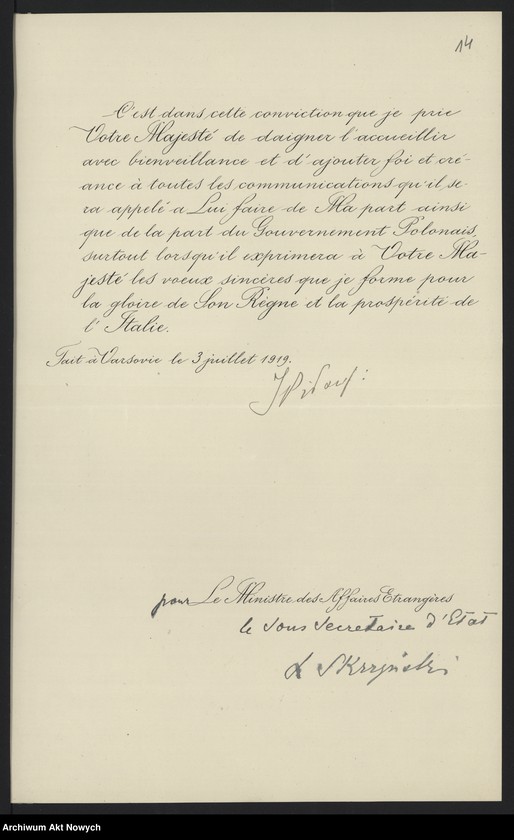 14
C'est dans cette conviction que je prie
Votre Majesté de daigner l'accueillir
avec bienveillance et d'ajouter foi et cré-
ance à toutes les communications qu'il se-
ra appelé a Lui faire de Ma part ainsi
que de la part du Gouvernement Polonais,
surtout lorsqu'il exprimera à Votre Ma-
jesté les voeux sincères que je forme pour
la gloire de Son Règne et la prospérité de
l'Italie.
Fait à Varsovie le 3 juillet 1919.
pour Le Ministre des Affaires Etrangères
le sous secretaire d'Etat
Skrzyński
Archiwum Akt Nowych